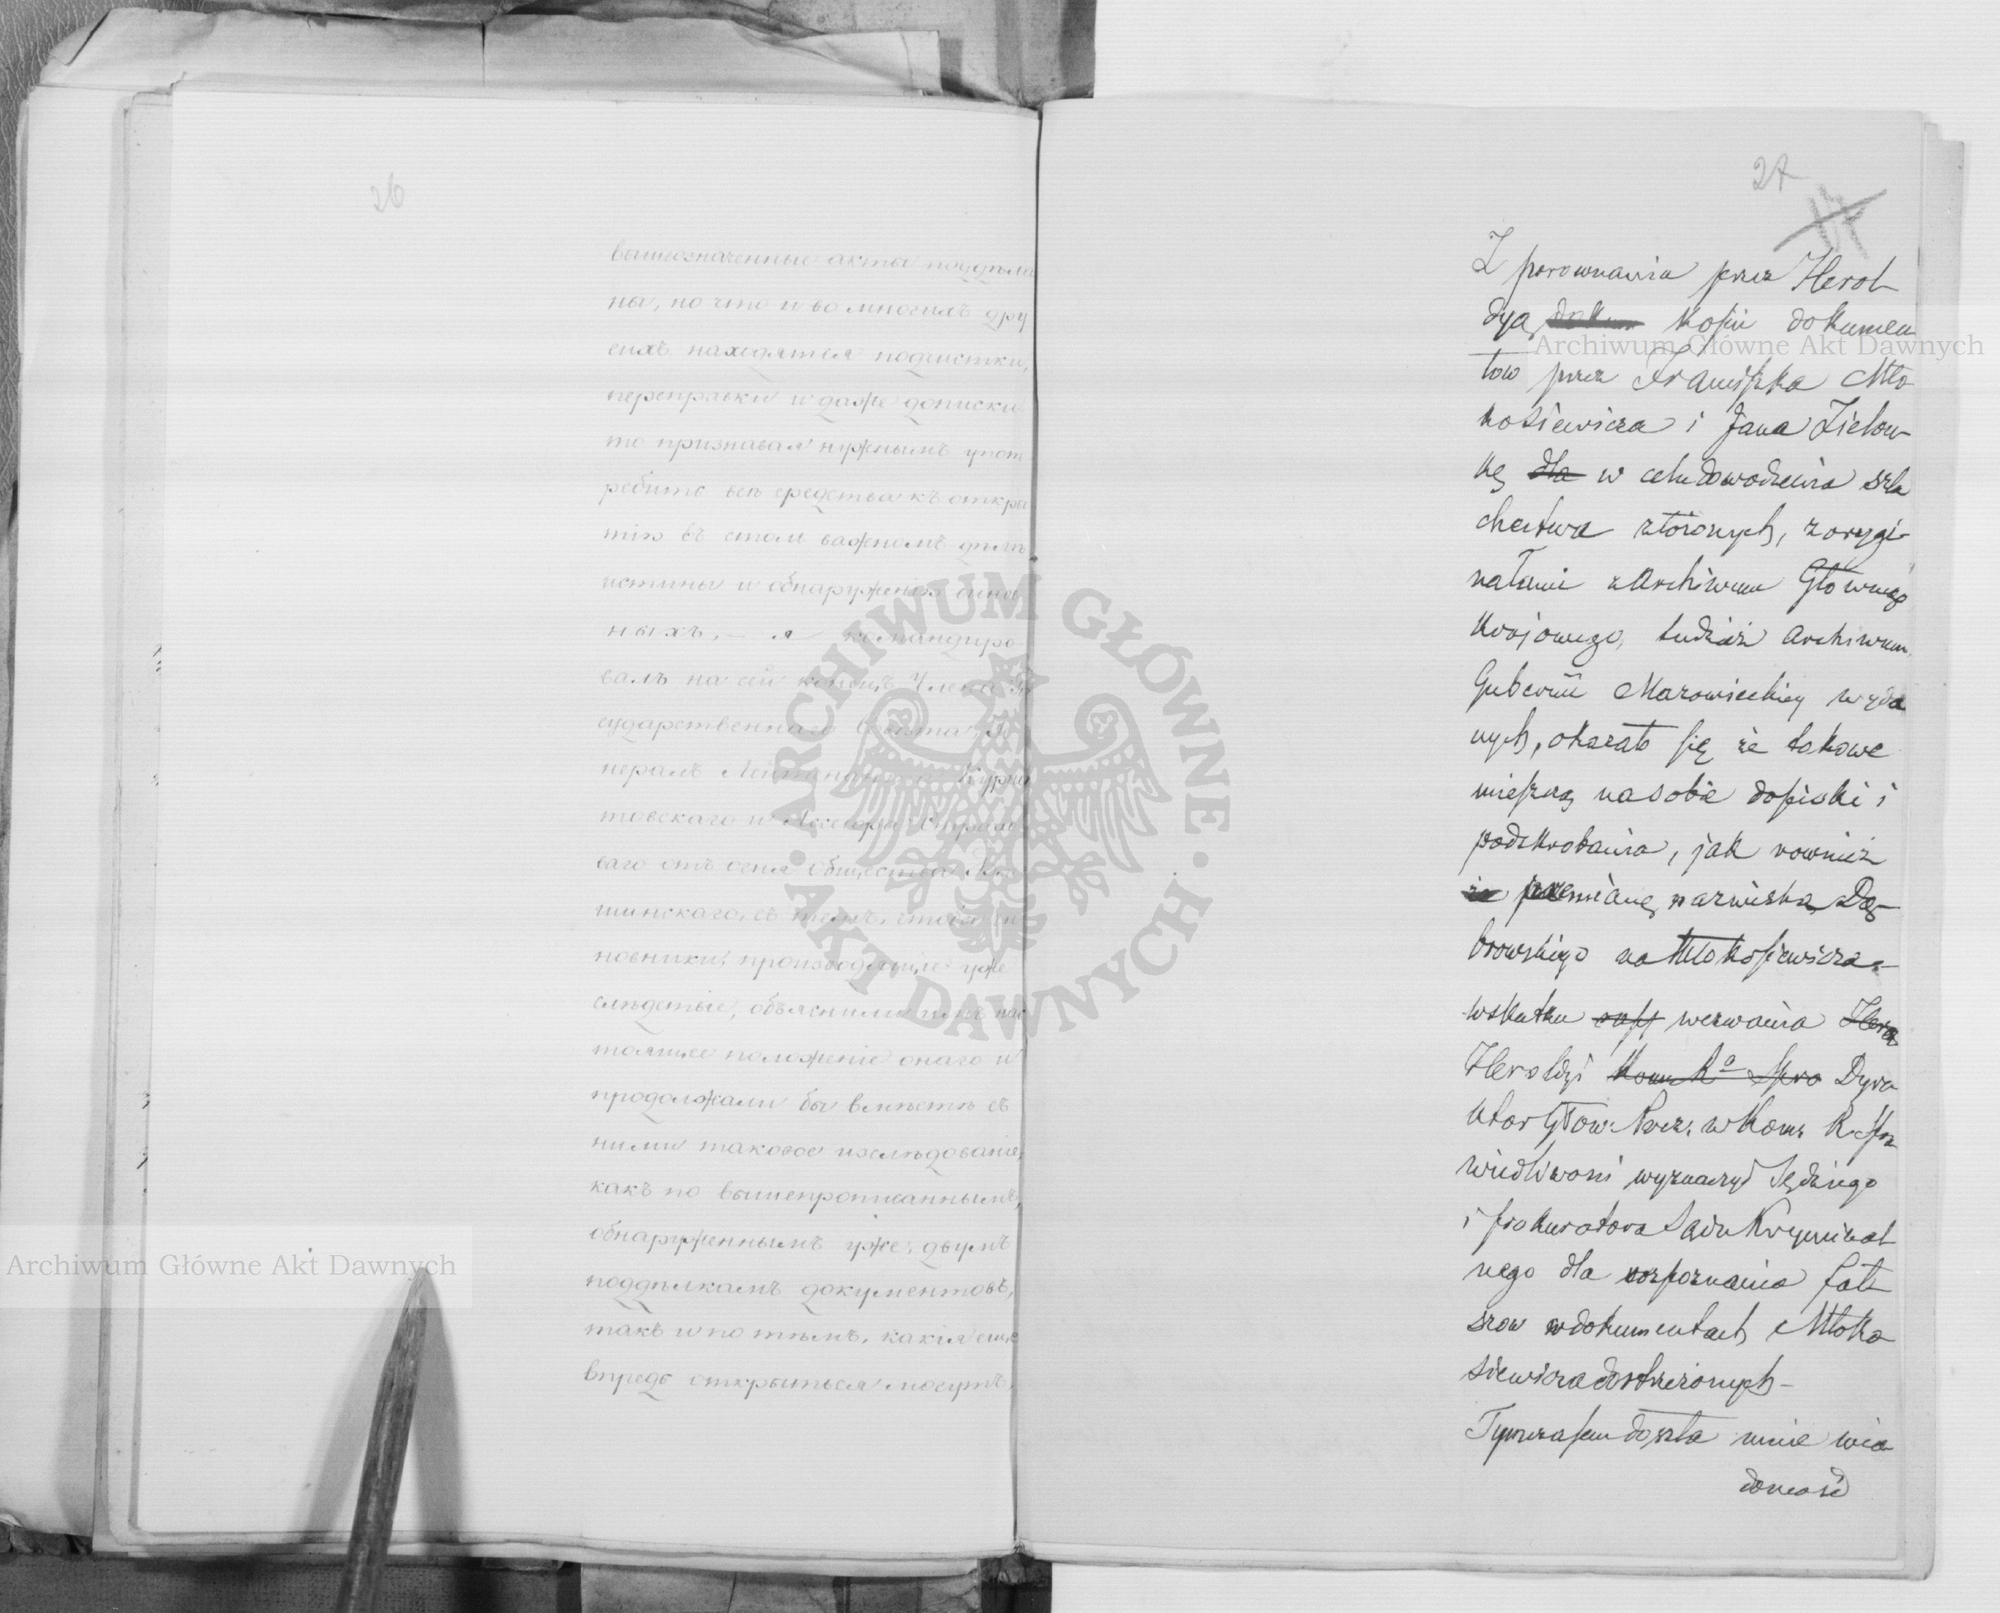 26
вышеозначенные акты поддѣла
ны, но что и во многихъ дру
гихъ находятся подчистки,
переправки и даже дописки
то признавая нужнымъ упот
ребить всѣ средства къ откры
тію въ столь важномъ дѣлѣ
истины и обнаруженія винов
ныхъ, – я командиро
валъ на сей конецъ Члена Го
сударственнаго Совѣта, Ге
нералъ Лейтенанта
товскаго и
ваго отъ огня общества
шинскаго, съ тѣмъ, чтобы чи
новники, производящіе уже
слѣдствіе, объяснили имъ нас
тоящее положеніе онаго и
продолжали бы вмѣстѣ съ
ними таковое изслѣдованіе,
какъ по вышепрописаннымъ,
обнаруженнымъ уже, двумъ
поддѣлкамъ документовъ,
такъ и по тѣмъ, какія еще
впредь открыться могутъ.
27
Z porownania przez Herol
dyą dokum kopii dokumen
tow przez Franciszka Mło
kosiewicza i Jana Zielow
kę dla w celu dowodzenia szla
chectwa złożonych, z orygi
nałami z Archiwum Głownego
Krajowego, tudzież Archiwum
Gubernii Mazowieckiey wyda
nych, okazało się że takowe
mieszczą na sobie dopiski i
podskrobania, jak rownież
że przemianę nazwiska Dą
browskiego na Młokosiewicza –
wskutku wezwania Hero
Heroldyi Kom Ra Spra Dyre
ktor Głow: Prez. w Kom: R. Spra
wiedliwosci wyznaczył Sędziego
i prokuratora Sądu Kryminal
nego dla rozpoznania fał
szow w dokumentach Młoko
siewicza dostrzeżonych –
Tymczasem doszła mnie wia
domość
ARCHIWUM GŁÓWNE
AKT DAWNYCH
Archiwum Główne Akt Dawnych
Archiwum Główne Akt Dawnych